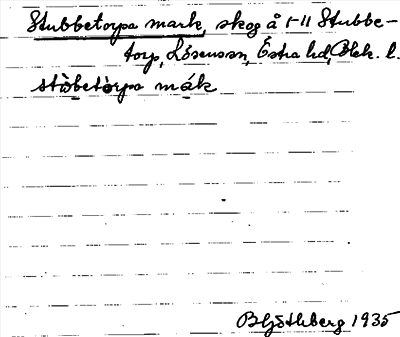 Stubbetorpa mark, skog å 1-11 Stubbe-
torp, Lösenssn, Östra hd, Blek. l.
stòbetòrpa mák
B Ljöthberg 1935